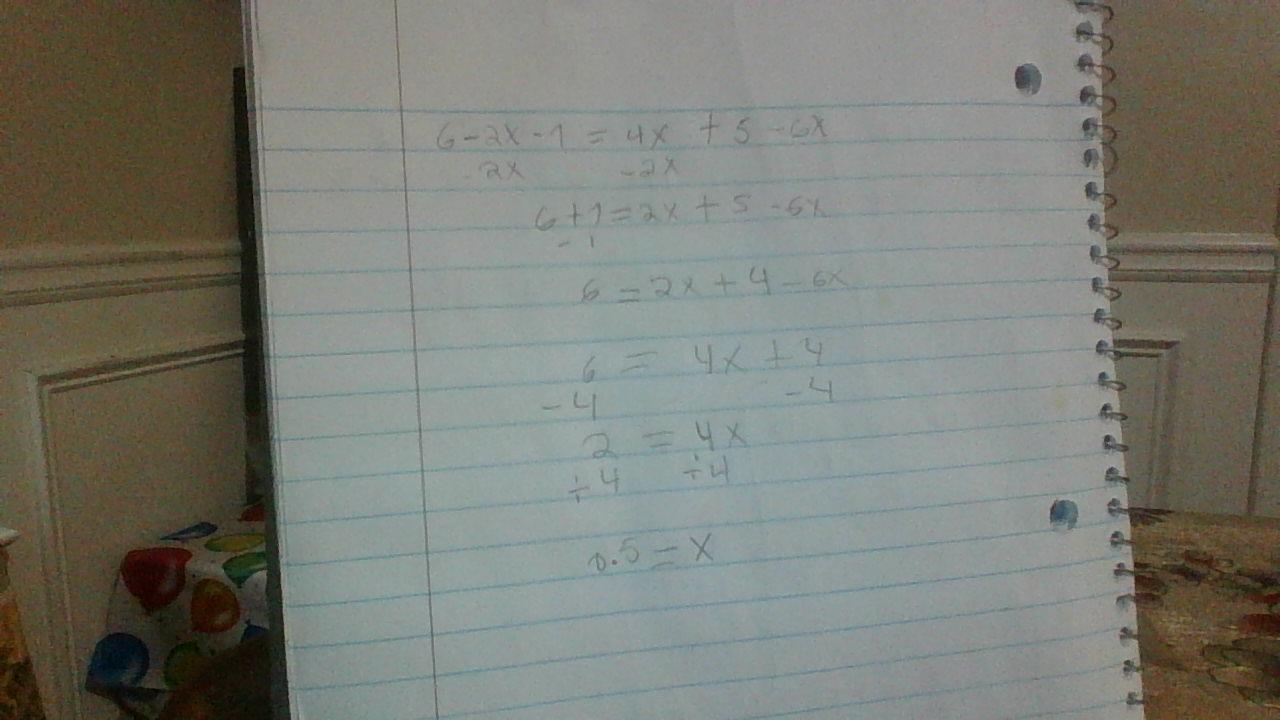 6 - 2x - 1 = 4x + 5 - 6x
- 2x - 2x
6 + 1 = 2x + 5 - 6x
- 1
6 = 2x + 4 - 6x
6 = 4x + 4
- 4 - 4
2 = 4x
÷ 4 ÷ 4
0.5 = x